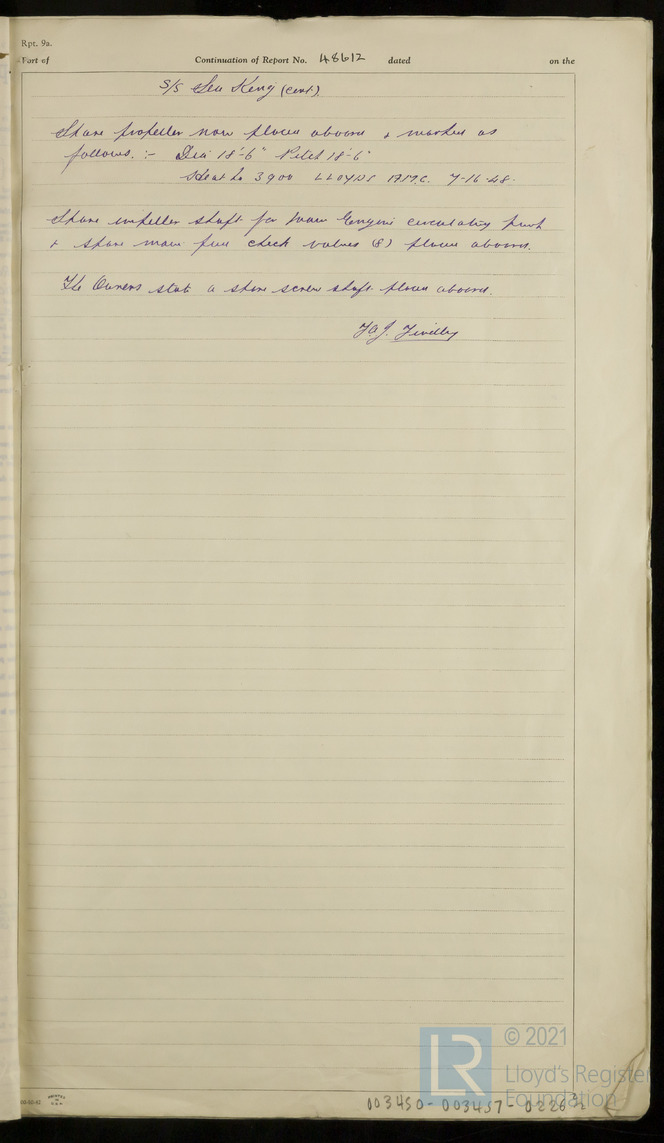 Rpt. 9a.
Port of Continuation of Report No. 48612 dated on the
S/S Sea King (cont).
Spare propeller now placed aboard & marked as
follows. :- Dia 18'-6" Pitch 18'-6"
Heat No 3900 LLOYDS 7-16-48.
Spare impeller shaft for Main Engine circulating pump
& spare main feed check valves (8) placed aboard.
The Owners state a spare screw shaft placed aboard.
PRINTED IN U.S.A
© 2021
LR
Lloyd's Register
Foundation
003450-003457-0226